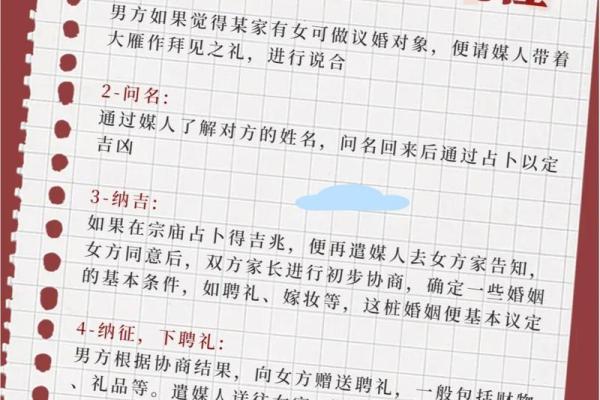 男方如果觉得某家有女可做议婚对象，便请媒人带着
大雁作拜见之礼，进行说合
2-问名：
通过媒人了解对方的姓名，问名回来后通过占卜以定
吉凶
3-纳吉：
如果在宗庙占卜得吉兆，便再遣媒人去女方家告知，
女方同意后，双方家长进行初步协商，确定一些婚姻
的基本条件，如聘礼、嫁妆等，这桩婚姻便基本议定
4-纳征，下聘礼：
男方根据协商结果，向女方赠送聘礼，一般包括财物
、礼品等。遣媒人送往女